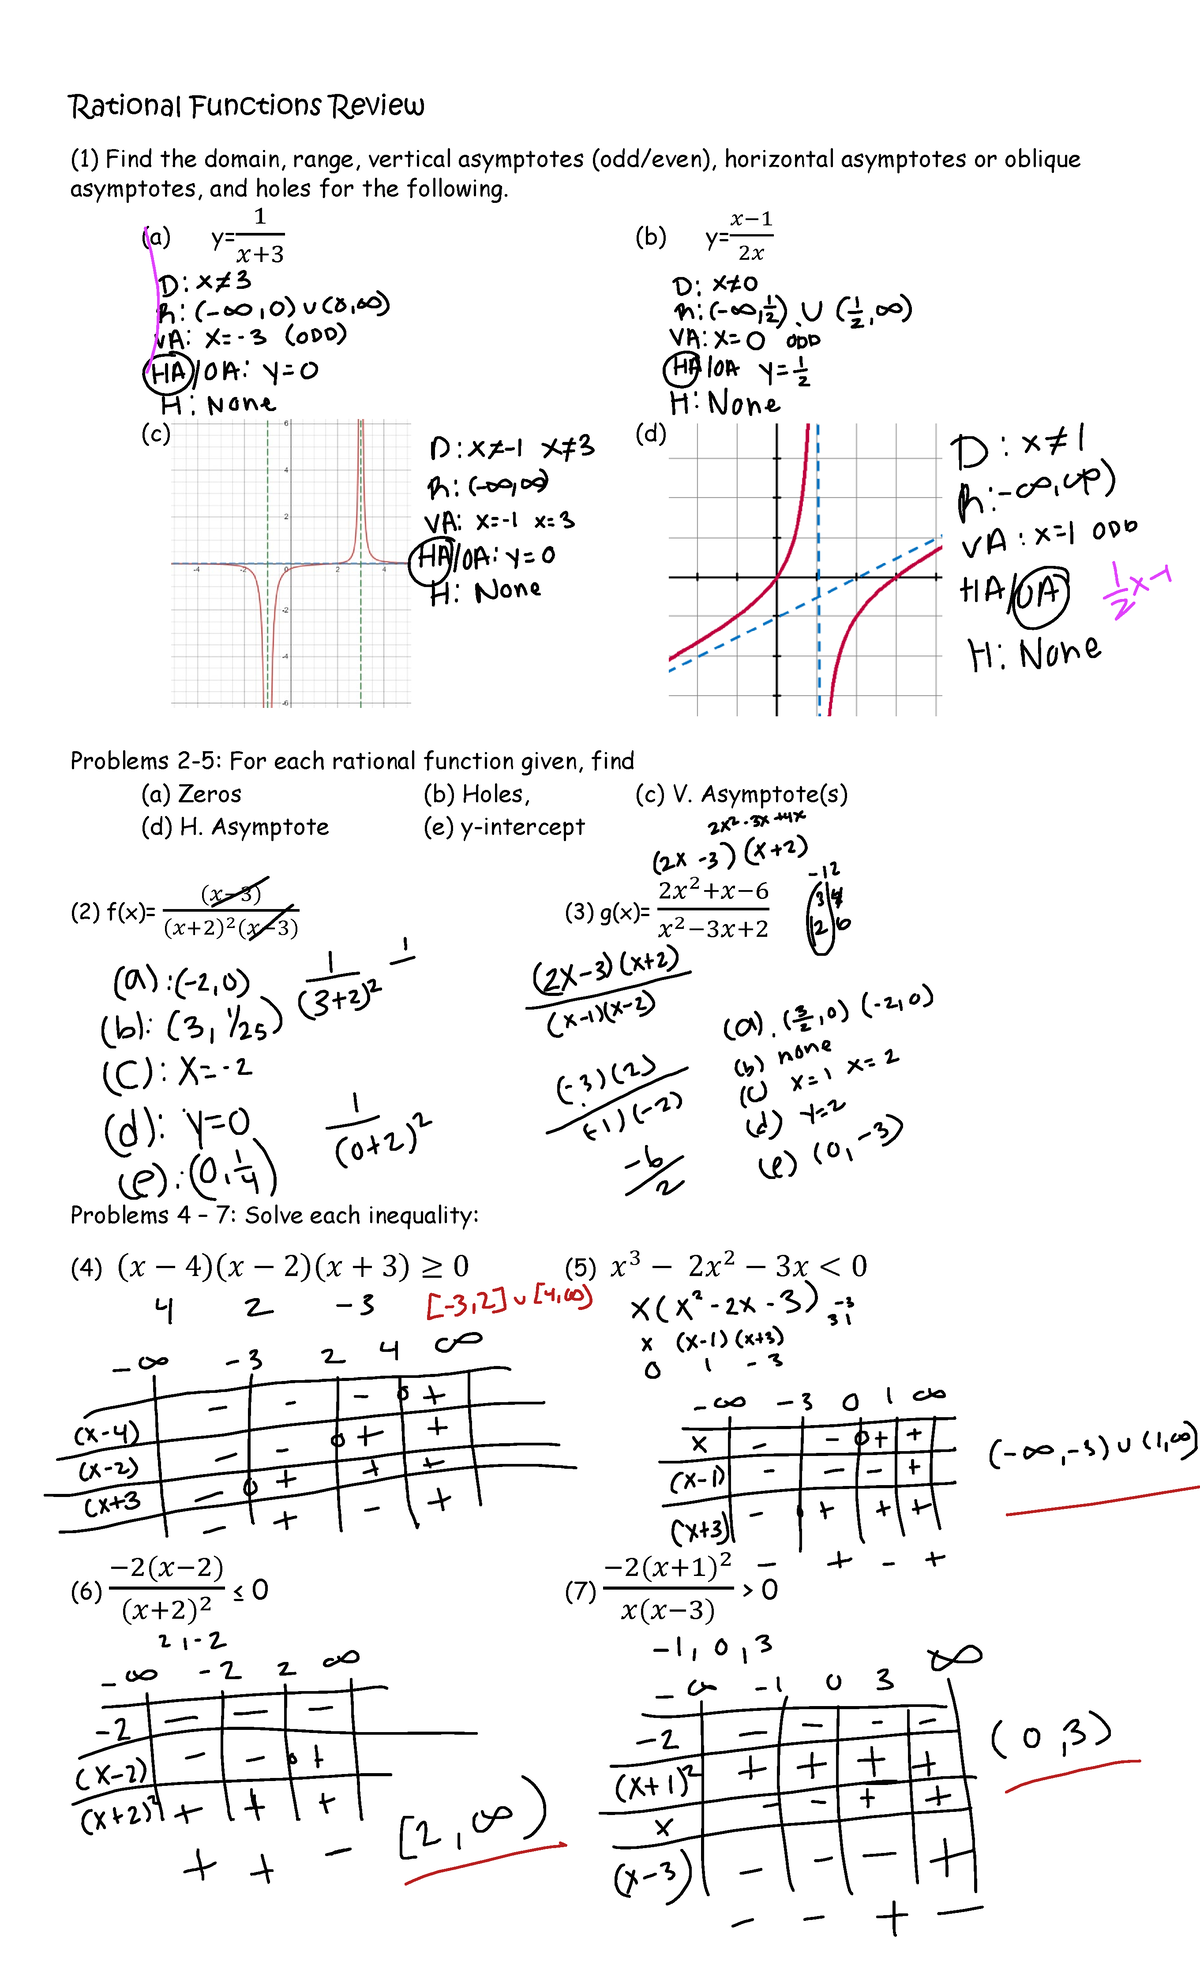 Rational Functions Review
(1) Find the domain, range, vertical asymptotes (odd/even), horizontal asymptotes or oblique
asymptotes, and holes for the following.
(a) y=1/(x+3)
D: x≠3
R: (-∞,0) ∪ (0,∞)
VA: x=-3 (ODD)
HA/OA: y=0
H: None
(b) y=(x−1)/2x
D: x≠0
R: (-∞,1/2) ∪ (1/2,∞)
VA: x=0 ODD
HA/OA y=1/2
H: None
(c)
6
4
2
-4 -2 0 2 4
-2
-4
-6
D: x≠-1 x≠3
R: (-∞,∞)
VA: x=-1 x=3
HA/OA: y=0
H: None
(d)
D: x≠1
R: -∞,∞)
VA: x=1 ODD
HA/OA 1/2x-1
H: None
Problems 2-5: For each rational function given, find
(a) Zeros (b) Holes, (c) V. Asymptote(s)
(d) H. Asymptote (e) y-intercept
(2) f(x)= (x−3)/((x+2)²(x−3))
(a): (-2,0)
1/(3+2)²
1
(b): (3, 1/25)
(C): X=-2
(d): y=0
1/(0+2)²
(e): (0,1/4)
2x²-3x+4x
(2x-3)(x+2)
(3) g(x)= (2x²+x−6)/(x²−3x+2)
-12
3 4
12 6
(2x-3)(x+2)
(x-1)(x-2)
(-3)(2)
(-1)(-2)
-6/2
(a). (3/2,0) (-2,0)
(b) none
(c) x=1 x=2
(d) y=2
(e) (0,-3)
Problems 4 – 7: Solve each inequality:
(4) (x − 4)(x − 2)(x + 3) ≥ 0
4 2 -3 [-3,2] ∪ [4,∞)
-∞ -3 2 4 ∞
(x-4) - - - 0 +
(x-2) - - 0 + +
(x+3 - 0 + + +
- + - +
(5) x³ − 2x² − 3x < 0
x(x²-2x-3) -3
3 1
x (x-1)(x+3)
0 1 -3
-∞ -3 0 1 ∞
x - - 0 + +
(x-1) - - - +
(x+3) - + + +
- + - +
(-∞,-3) ∪ (1,∞)
(6) −2(x−2)/(x+2)² ≤ 0
2,-2
-∞ -2 2 ∞
-2 - - -
(x-2) - - 0 +
(x+2)² + + +
+ + -
[2,∞)
(7) −2(x+1)²/(x(x−3)) > 0
-1, 0, 3
-∞ -1 0 3 ∞
-2 - - - -
(x+1)² + + + +
x - - + +
(x-3) - - - +
- - + -
(0,3)